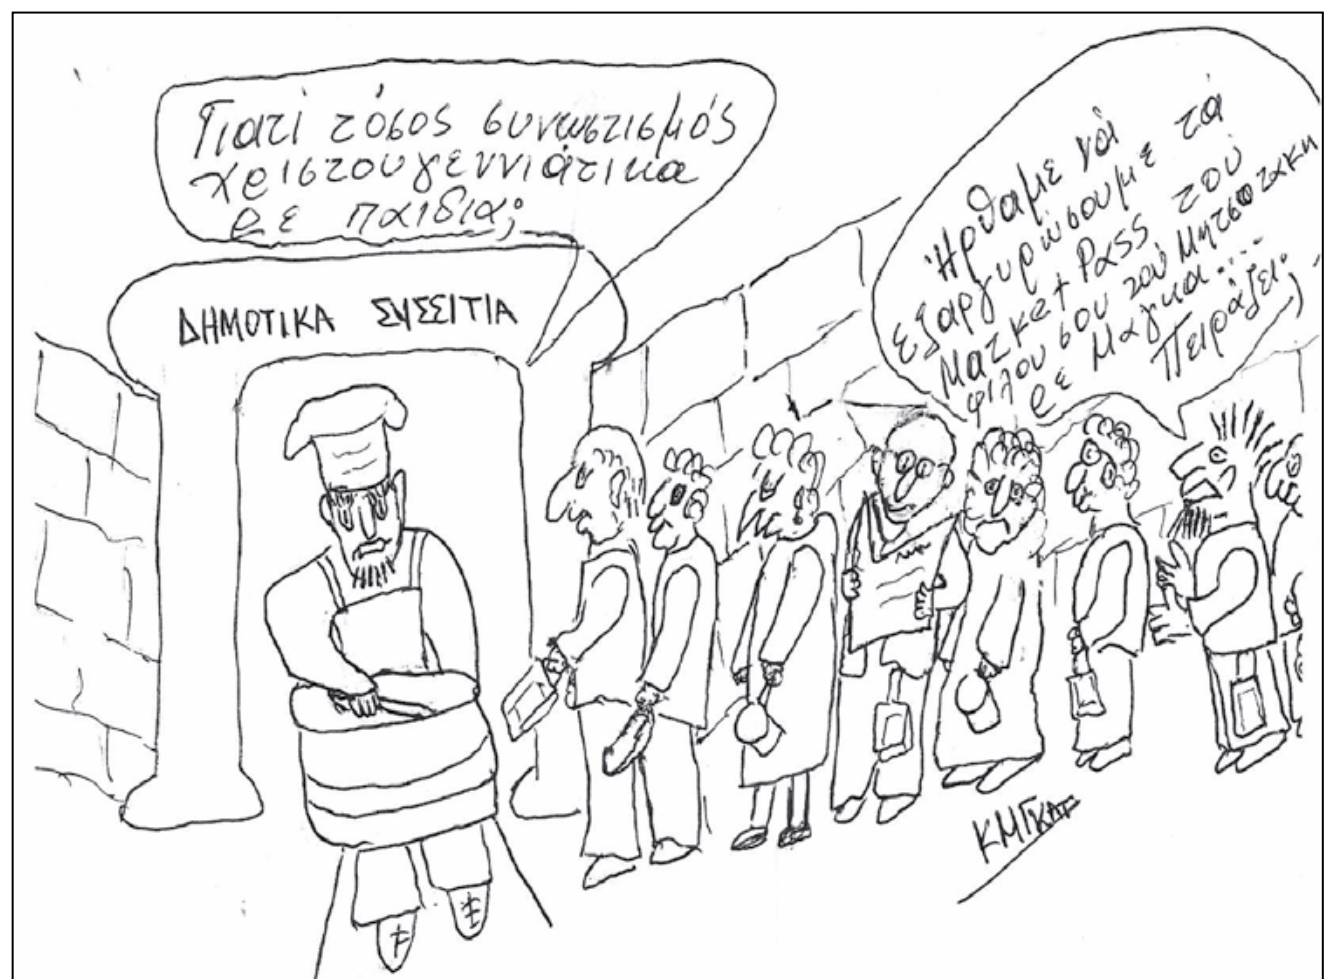 Γιατί τόσος συνωστισμός
χριστουγεννιάτικα
ρε παιδιά;
ΔΗΜΟΤΙΚΑ ΣΥΣΣΙΤΙΑ
Ήρθαμε νά
εξαργυρώσουμε τά
Ματκετ Pass του
φίλου σου τού Μητσοτακη
ρε Μάγκα...
Πειράζει;